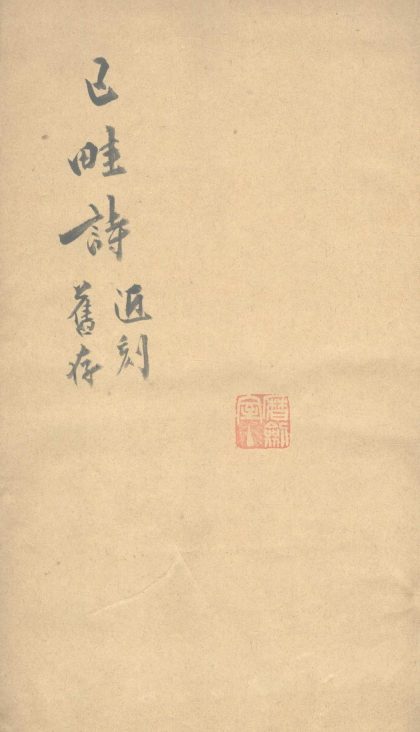 已畦詩
近刻
舊存